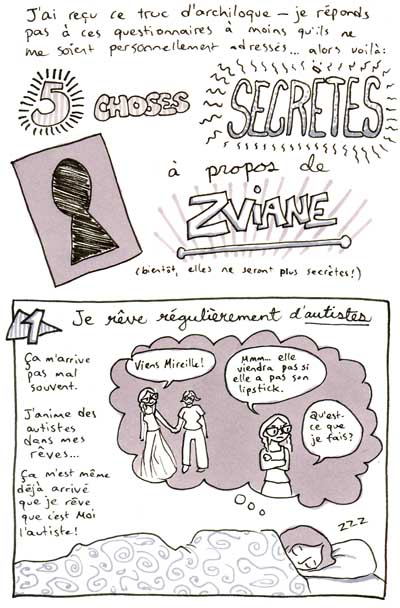 J'ai reçu ce truc d'archiloque – je réponds
pas à ces questionnaires à moins qu'ils ne
me soient personnellement adressés... alors voilà:
5 CHOSES SECRÈTES
à propos de
ZVIANE
(bientôt, elles ne seront plus secrètes!)
1 Je rêve régulièrement d'autistes
Ça m'arrive
pas mal
souvent.
J'anime des
autistes
dans mes
rêves...
Ça m'est même
déjà arrivé
que je rêve
que c'est Moi
l'autiste!
Viens Mireille!
Mmm... elle
viendra pas si
elle a pas son
lipstick.
Qu'est-
ce que
je fais?
zzz